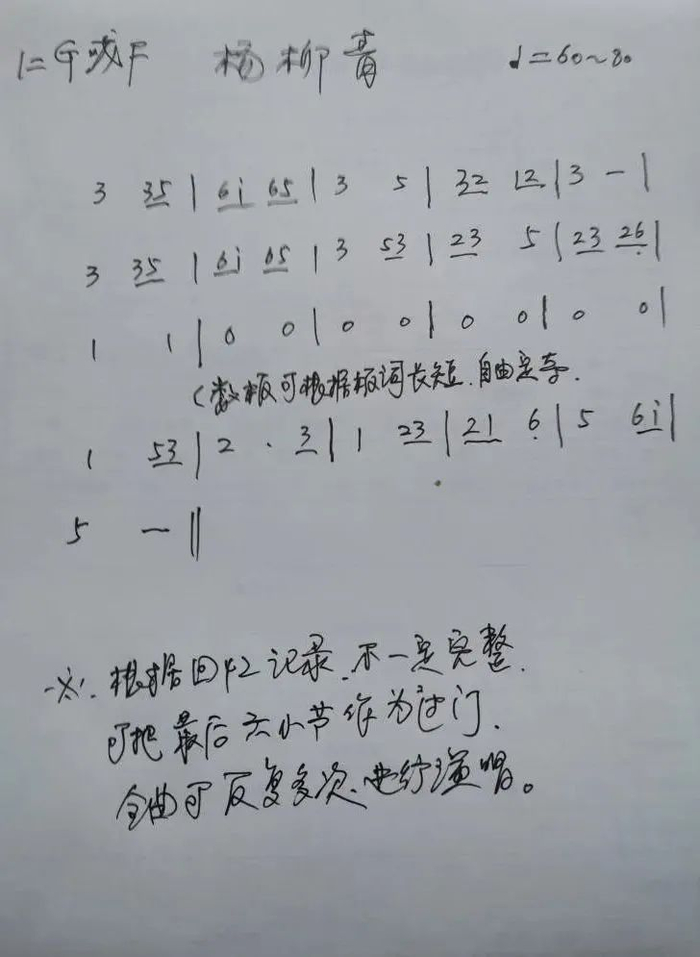 1=G或F 杨柳青 ♩=60~80
3 35 | 6i 65 | 3 5 | 32 12 | 3 - |
3 35 | 6i 65 | 3 53 | 23 5 | 23 26 |
1 1 | 0 0 | 0 0 | 0 0 | 0 0 |
(数板可根据板词长短.自由定夺.
1 53 | 2 · 3 | 1 23 | 21 6 | 5 6i |
5 - ||
※.根据回忆记录.不一定完整.
可把最后六小节作为过门.
全曲可反复多次.进行演唱。